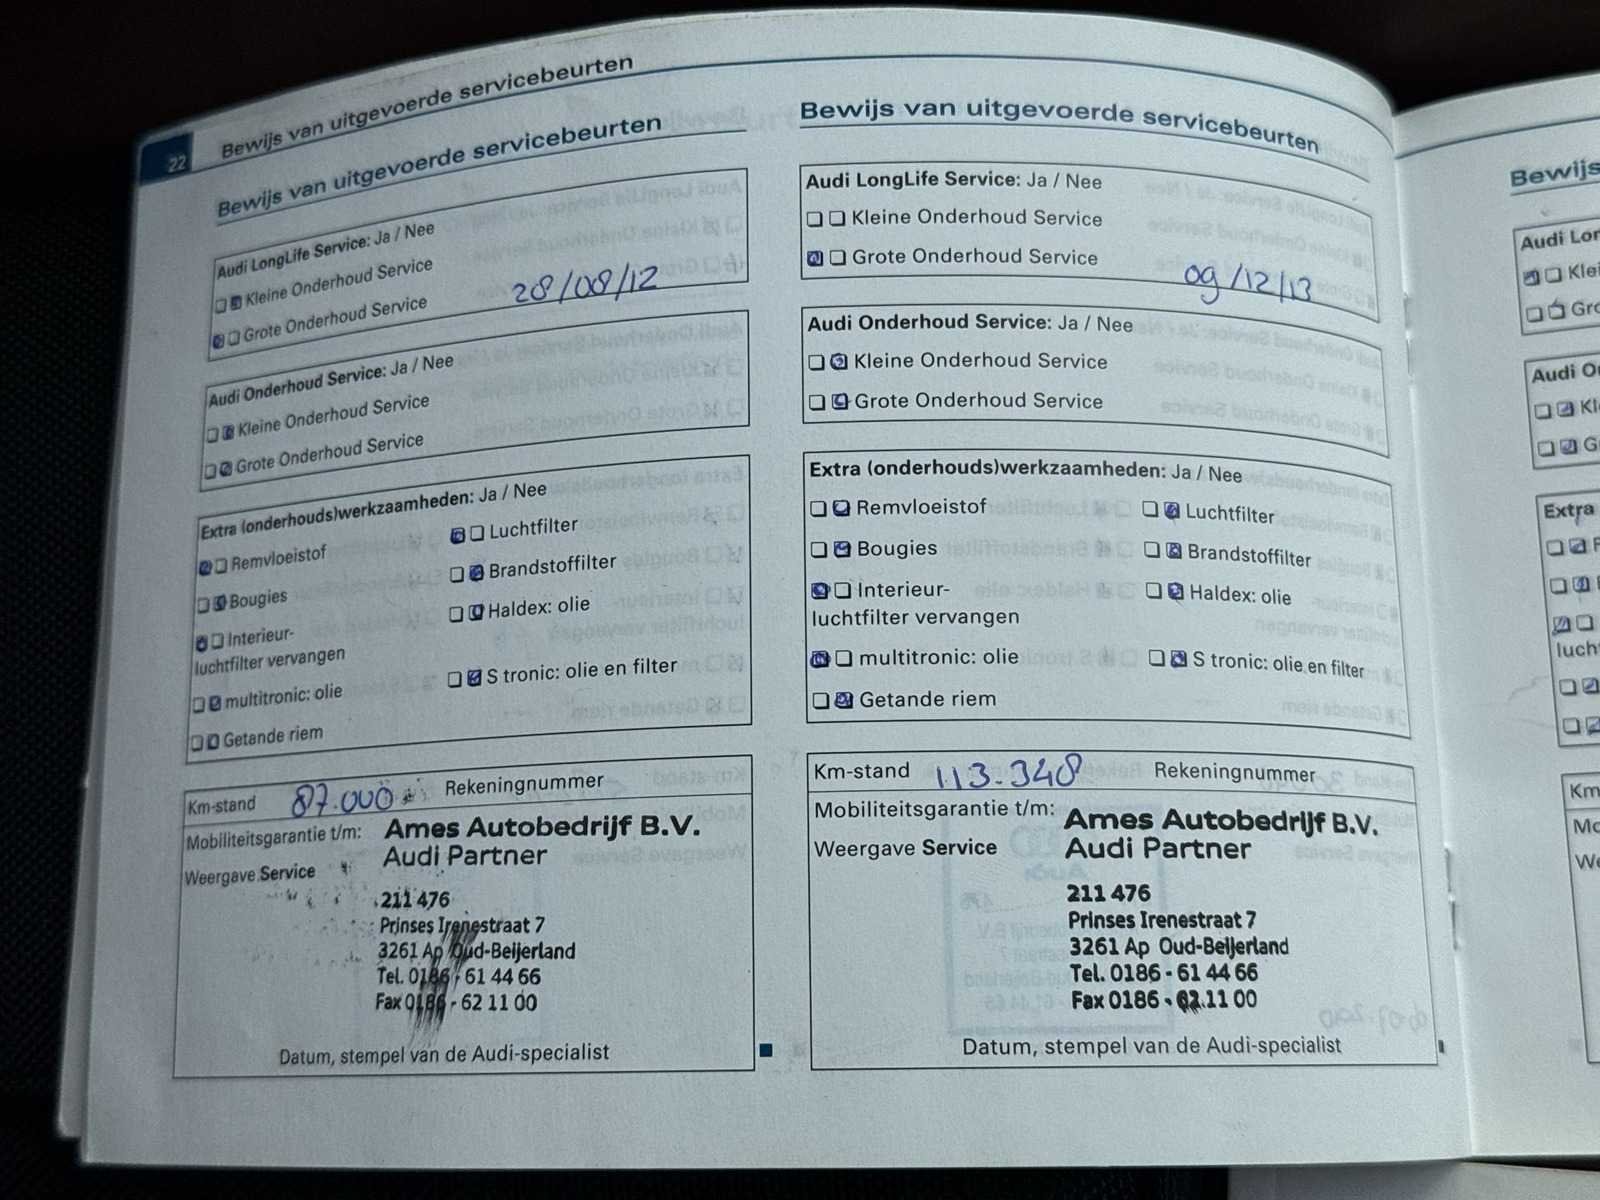 22
Bewijs van uitgevoerde servicebeurten
Bewijs van uitgevoerde servicebeurten
Audi LongLife Service: Ja / Nee
Kleine Onderhoud Service
Grote Onderhoud Service
28/08/12
Audi Onderhoud Service: Ja / Nee
Kleine Onderhoud Service
Grote Onderhoud Service
Extra (onderhouds)werkzaamheden: Ja / Nee
Remvloeistof
Luchtfilter
Bougies
Brandstoffilter
Interieur-
luchtfilter vervangen
Haldex: olie
multitronic: olie
S tronic: olie en filter
Getande riem
Km-stand 87.000 Rekeningnummer
Mobiliteitsgarantie t/m:
Weergave Service
Ames Autobedrijf B.V.
Audi Partner
211 476
Prinses Irenestraat 7
3261 Ap Oud-Beijerland
Tel. 0186 - 61 44 66
Fax 0186 - 62 11 00
Datum, stempel van de Audi-specialist
Bewijs van uitgevoerde servicebeurten
Audi LongLife Service: Ja / Nee
Kleine Onderhoud Service
Grote Onderhoud Service
09/12/13
Audi Onderhoud Service: Ja / Nee
Kleine Onderhoud Service
Grote Onderhoud Service
Extra (onderhouds)werkzaamheden: Ja / Nee
Remvloeistof
Luchtfilter
Bougies
Brandstoffilter
Interieur-
luchtfilter vervangen
Haldex: olie
multitronic: olie
S tronic: olie en filter
Getande riem
Km-stand 113.348 Rekeningnummer
Mobiliteitsgarantie t/m:
Weergave Service
Ames Autobedrijf B.V.
Audi Partner
211 476
Prinses Irenestraat 7
3261 Ap Oud-Beijerland
Tel. 0186 - 61 44 66
Fax 0186 - 62 11 00
Datum, stempel van de Audi-specialist
Bewijs
Audi Lon
Klei
Gro
Audi O
Kl
G
Extra
luch
Km
Mo
We